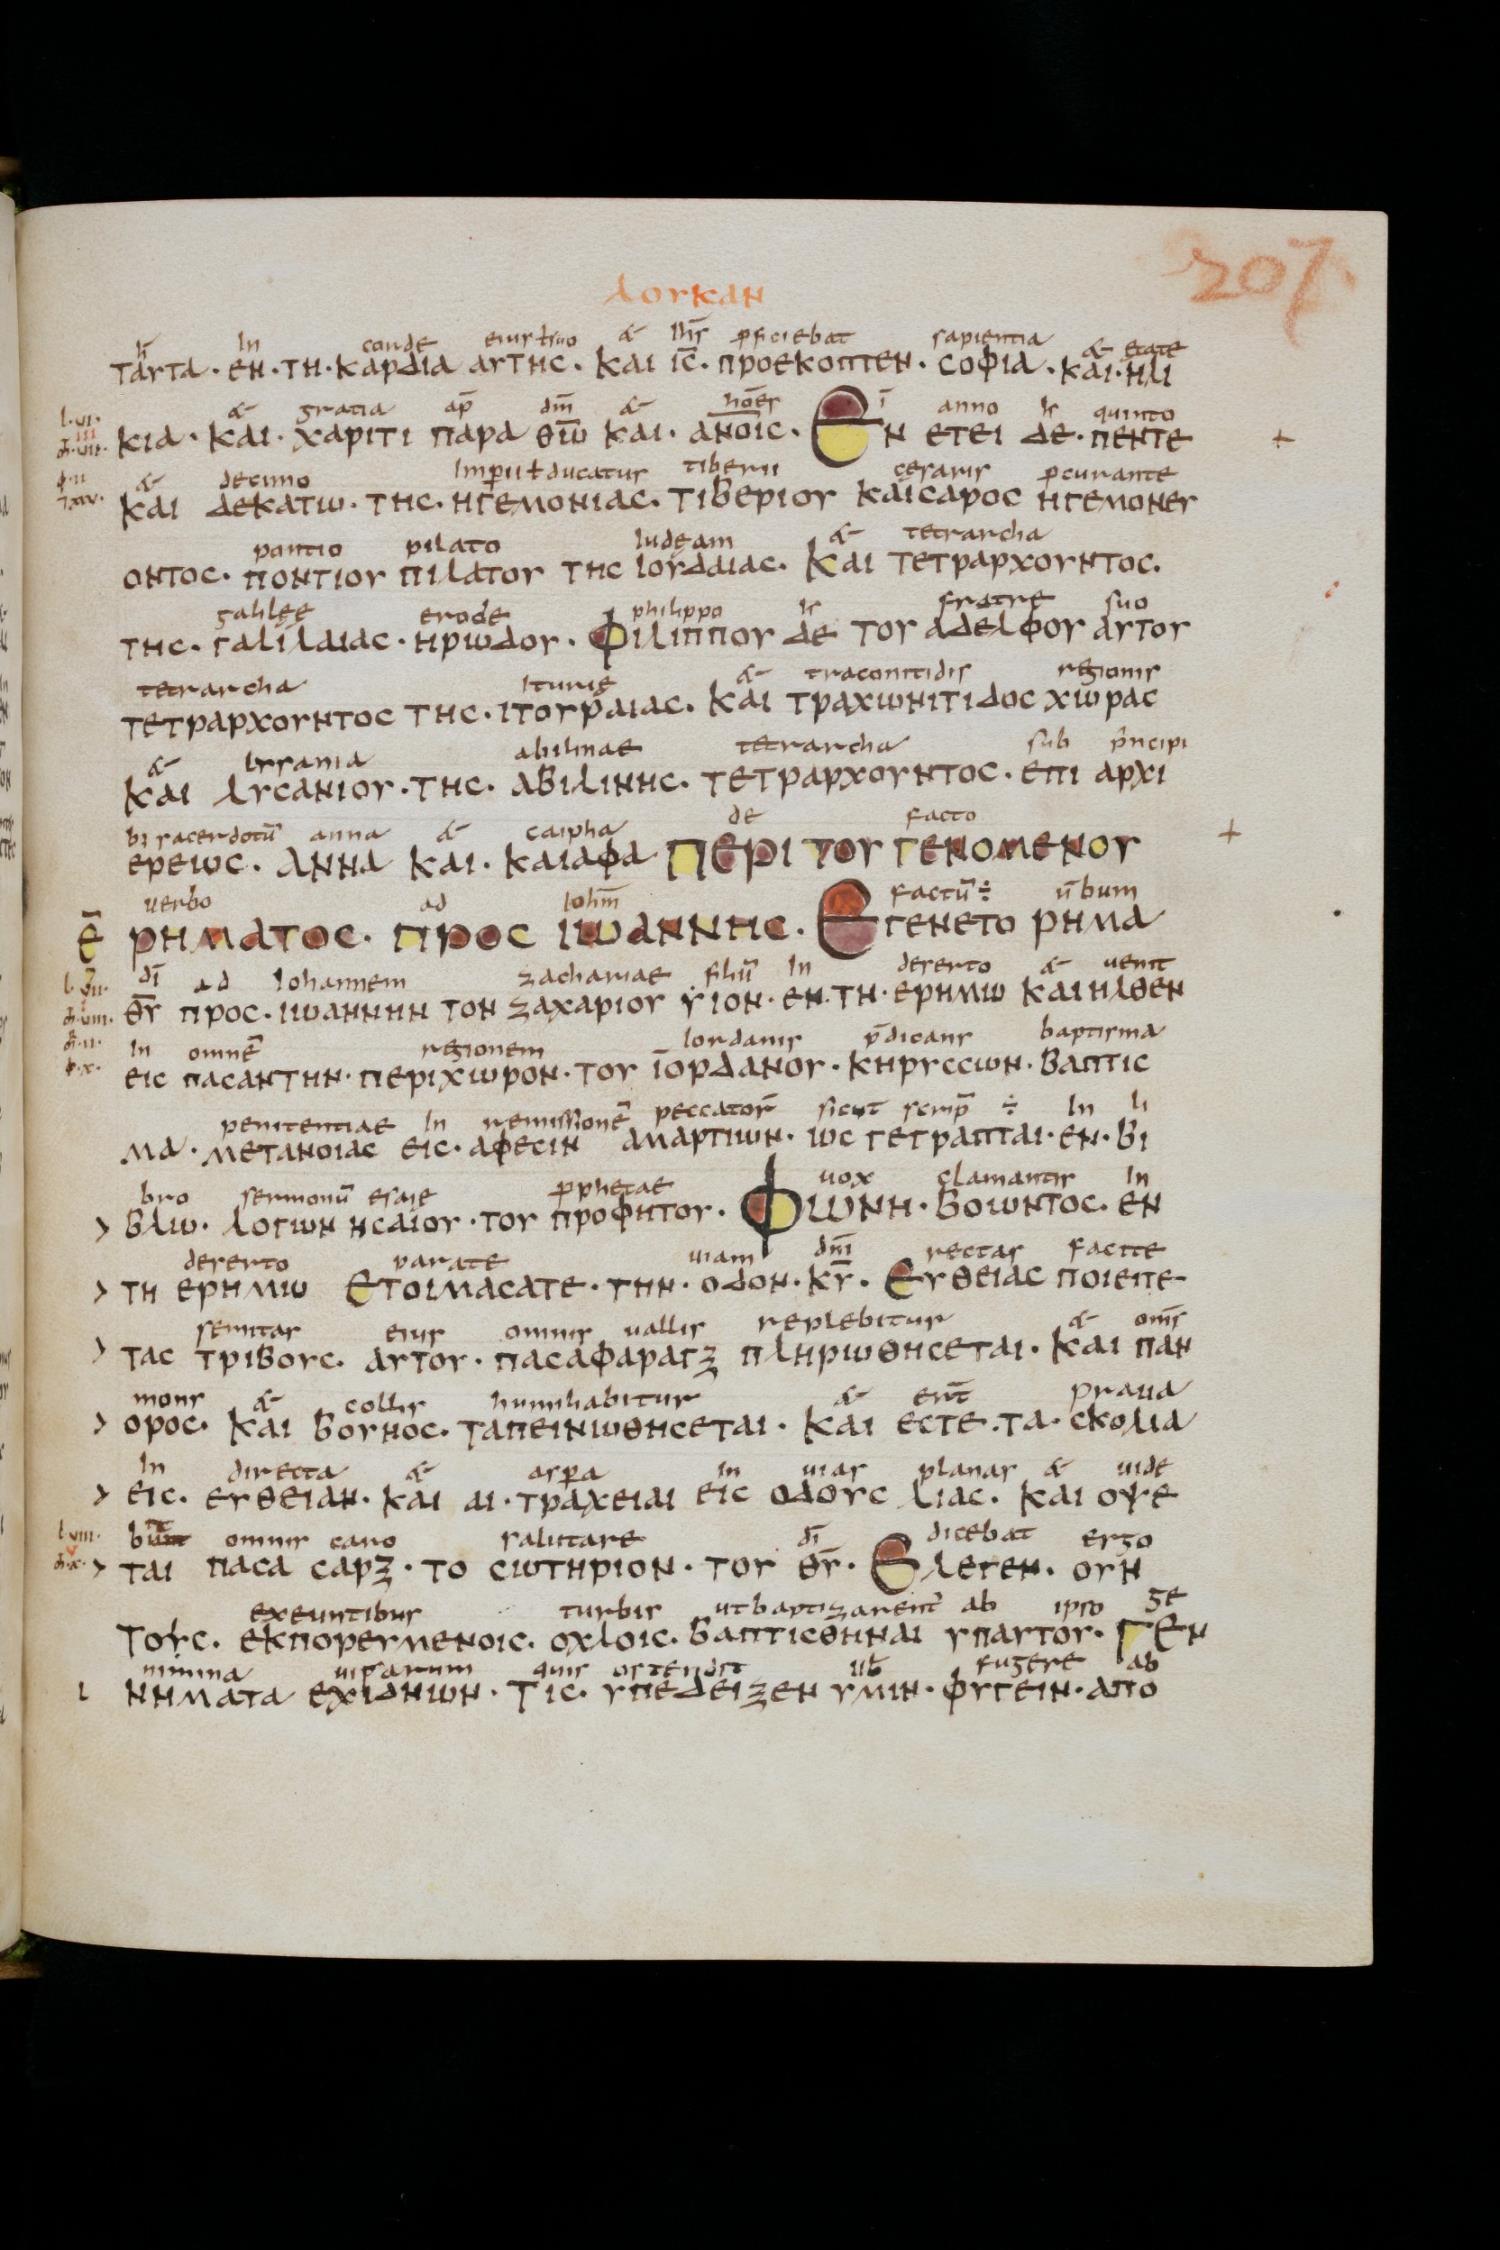 λουκαν
207
h̄ In corde eius ł suo & Ihs̄ ꝓficiebat sapientia & etate
ταυτα · εν · τη · καρδια αυτης · και ις̄ · προεκοπτεν · σοφια · και · ηλι
& gratia ap̄ dm̄ & hōes ī anno h̄ quinto
κια · και · χαριτι παρα θιω̄ και · ανοις · Εν ετει δε · πεντε
& decimo Imperii ł ducatus tiberii cęsaris ꝓcurante
και δεκατιω · της · ηγεμονιας · τιβεριου καισαρος ηγεμονευ
pontio pilato Iudęam & tetrarcha
οντος · ποντιου πιλατου της ιουδαιας · και τετραρχουντος ·
galilęe erode philippo h̄ fratre suo
της · γαλιλαιας · ηριωδου · Φιλιππου δε του αδελφου αυτου
tetrarcha Iturię & traconitidis regionis
τετραρχουντος της · ιτουραιας · και τραχιωνιτιδος χιωρας
& lyrania abilinae tetrarcha sub p̄ncipi
και λυσανιου · της · αβιλινης · τετραρχουντος · επι αρχι
bi sacerdotū anna & caipha de facto
ερειως · αννα και · καιαφα περι του γενομενου
verbo ad Iohm̄ factū ÷ ūbum
ρηματος · προς ιωαννης · Εγενετο ρημα
dī ad Iohannem zachariae filiū In deserto & uenit
θῡ προς · ιωαννην τον ζαχαριου υιον · εν · τη · ερημιω και ηλθεν
In omnē regionem Iordanis p̄dicans baptisma
εις πασαν την · περιχιωρον · του ιορδανου · κηρυσσιων · βαπτις
penitentiae In remissionē peccator̄ sicut scrip̄ ÷ In li
μα · μετανοιας εις · αφεσιν αμαρτιων · ιως γεγραπται · εν · βι
bro sermonū esaię ꝓphetae uox clamantis In
βλιω · λογιων ησαιου · του προφητου · Φιωνη · βοιωντος · εν
deserto parate uiam dnī rectas facite
τη ερημιω Ετοιμασατε · την · οδον · κῡ · Ευθειας ποιειτε
semitas eius omnis uallis replebitur & omīs
τας τριβους · αυτου · πασα φαραγξ πληριωθησεται · και παν
mons & collis humiliabitur & ert̄ praua
ορος · και βουνος · ταπεινιωθησεται · και εστε · τα · σκολια
In directa & asꝑa in uias planas & uide
εις · ευθειαν · και αι · τραχειαι εις οδους λιας · και οψε
omnis caro salutare dī dicebat ergo
ται πασα σαρξ · το σιωτηριον · του θῡ · Ελεγεν · ουν
exeuntibus turbis ut baptizarent̄ ab ipso ge
τους · εκπορευμενοις · οχλοις · βαπτισθηναι υπ αυτου · Γεν
nimina uiparum quis ostendit uob̄ fugere ab
νηματα εχιδνιων · Τις · υπεδειξεν υμιν · φυγειν · απο